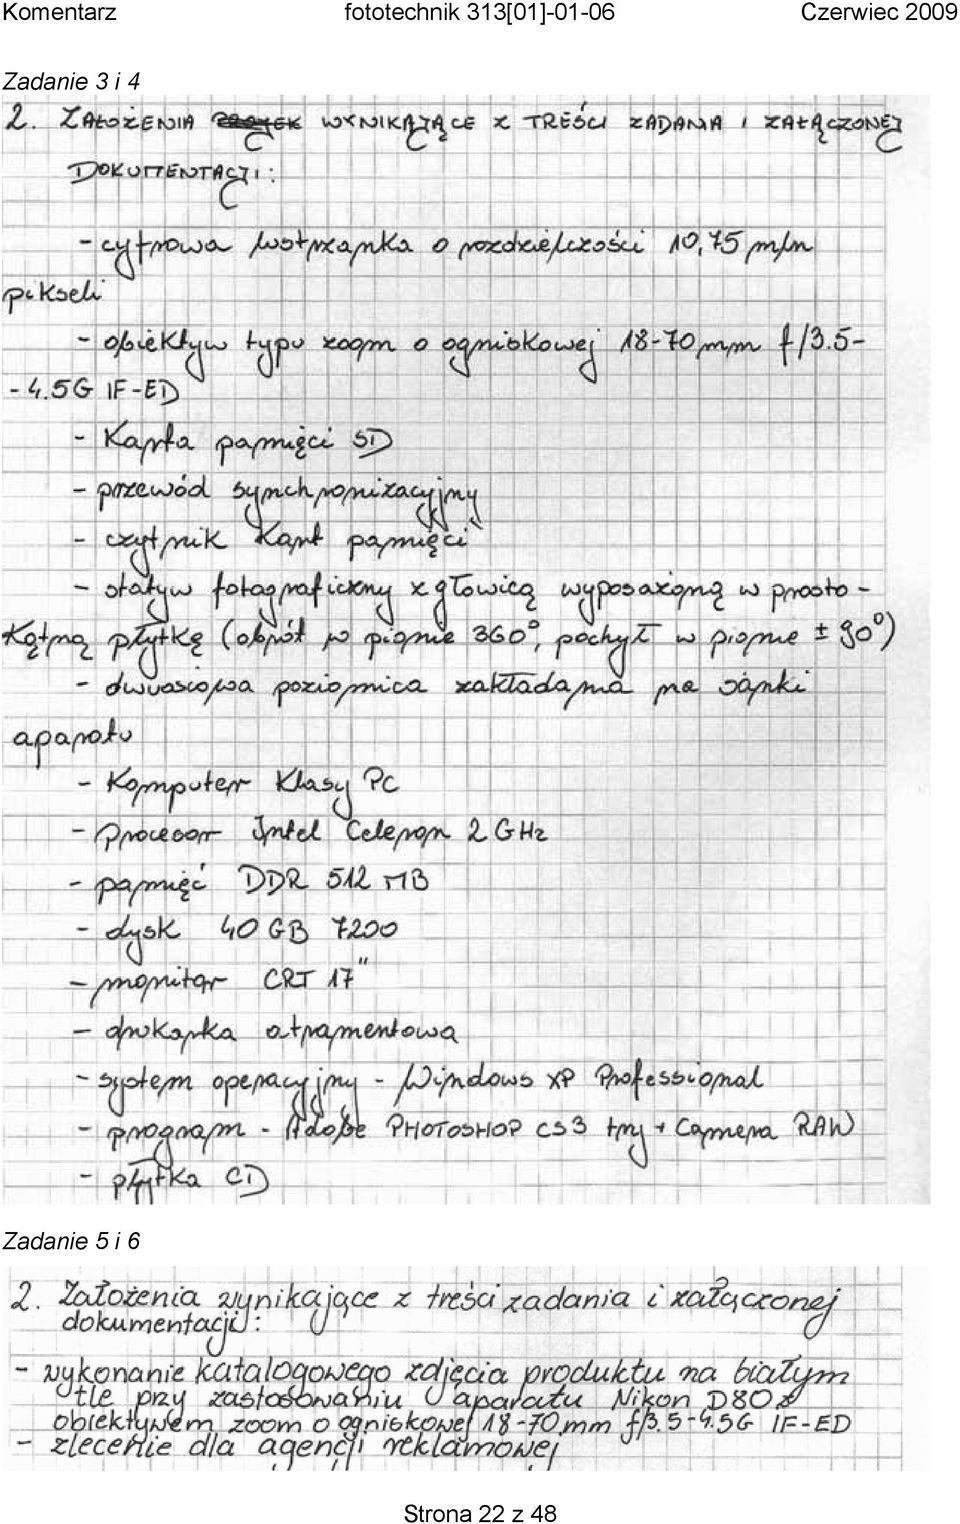 Komentarz fototechnik 313[01]-01-06 Czerwiec 2009
Zadanie 3 i 4
2. ZAŁOŻENIA WYNIKAJĄCE Z TREŚCI ZADANIA I ZAŁĄCZONEJ
DOKUMENTACJI:
- cyfrowa lustrzanka o rozdzielczości 10,75 mln
pikseli
- obiektyw typu zoom o ogniskowej 18-70 mm f/3.5-
-4.5G IF-ED
- Karta pamięci SD
- przewód synchronizacyjny
- czytnik Kart pamięci
- statyw fotograficzny z głowicą wyposażoną w prosto-
kątną płytkę (obrót w pionie 360°, pochył w pionie ± 90°)
- dwuosiowa poziomnica zakładana na sanki
aparatu
- Komputer Klasy PC
- Procesor Intel Celeron 2 GHz
- pamięć DDR 512 MB
- dysk 40 GB 7200
- monitor CRT 17"
- drukarka atramentowa
- system operacyjny - Windows XP Professional
- program - Adobe PHOTOSHOP CS3 try + Camera RAW
- płytka CD
Zadanie 5 i 6
2. Założenia wynikające z treści zadania i załączonej
dokumentacji:
- wykonanie katalogowego zdjęcia produktu na białym
tle przy zastosowaniu aparatu Nikon D80 z
obiektywem zoom o ogniskowej 18-70 mm f/3.5-4.5G IF-ED
- zlecenie dla agencji reklamowej
Strona 22 z 48